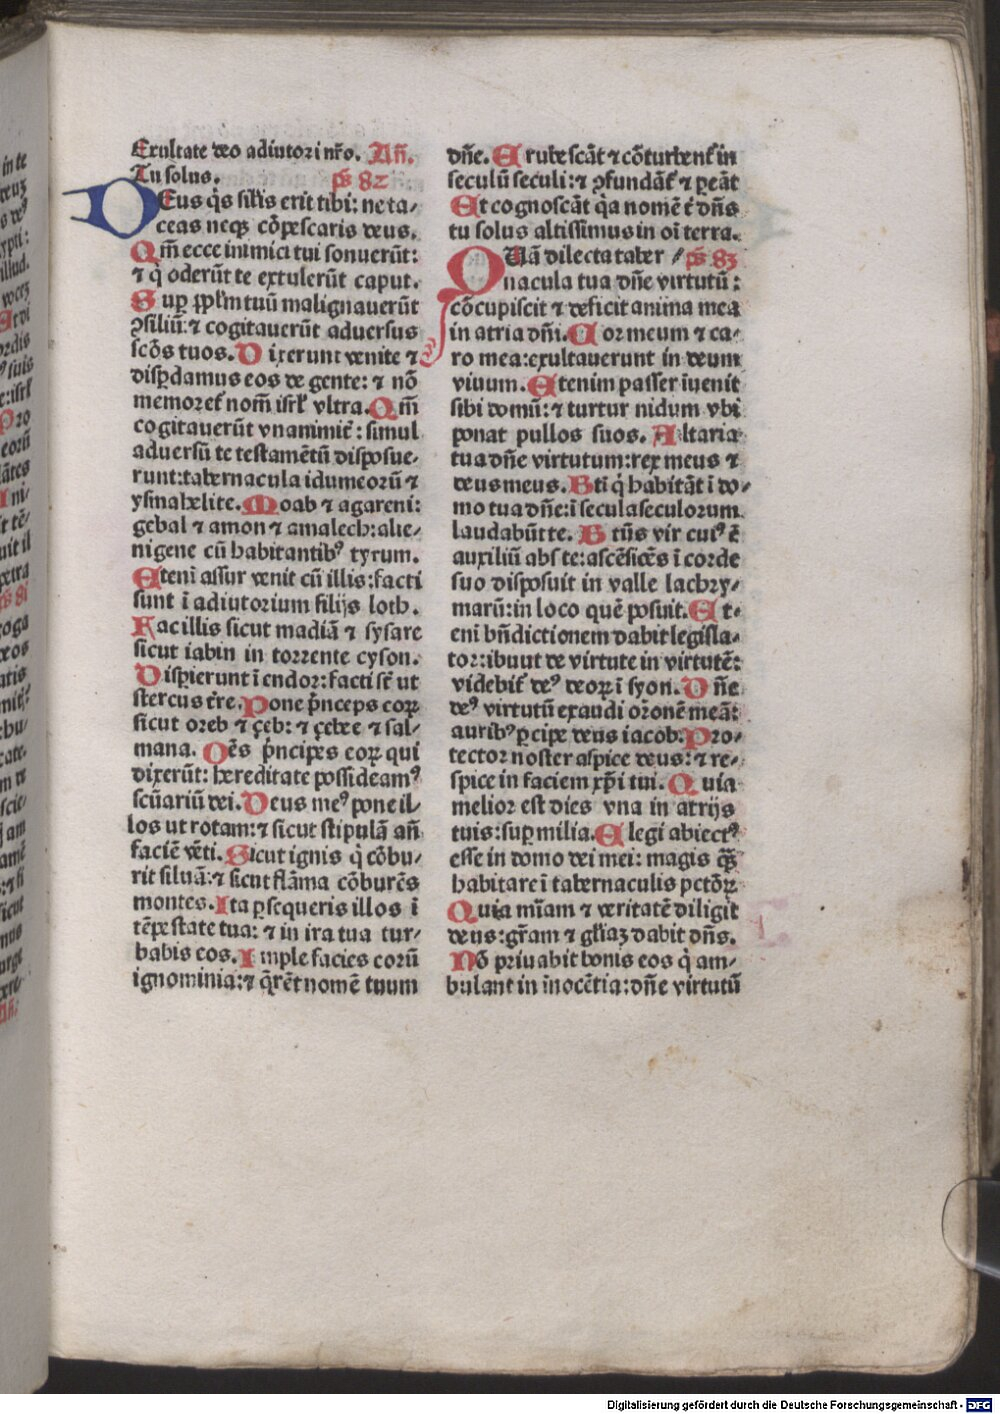 Exultate deo adiutori nr̄o. Añ.
Tu solus. ps 82
DEus q̄s sil̄is erit tibi: ne ta⸗
ceas neqꝫ cōpescaris deus.
Qm̄ ecce inimici tui sonuerūt:
⁊ q̇ oderūt te extulerūt caput.
Sup̱ ꝓpl̄m tuū malignauerūt
ꝯsiliū: ⁊ cogitauerūt aduersus
sc̄os tuos. Dixerunt venite ⁊
disp̱damus eos de gente: ⁊ nō
memoret᷑ nom̄ isrl̄ vltra. Qm̄
cogitauerūt vnanimit᷑: simul
aduersū te testamētū disposue⸗
runt: tabernacula idumeorū ⁊
ysmahelite. Moab ⁊ agareni:
gebal ⁊ amon ⁊ amalech: alie⸗
nigene cū habitantibꝰ tyrum.
Eteni assur venit cū illis: facti
sunt ī adiutorium filijs loth.
Fac illis sicut madiā ⁊ sysare
sicut iabin in torrente cyson.
Disp̱ierunt ī endor: facti st̄ ut
stercus tr̄e. Pone p̄nceps eoꝝ
sicut oreb ⁊ çeb: ⁊ çebee ⁊ sal⸗
mana. Oēs p̄ncipes eoꝝ qui
dixerūt: hereditate possideamꝰ
scūariū dei. Deus meꝰ pone il⸗
los ut rotam: ⁊ sicut stipulā añ
faciē vēti. Sicut ignis q̇ cōbu⸗
rit siluā: ⁊ sicut flāma cōburēs
montes. Ita p̱sequeris illos ī
tēpestate tua: ⁊ in ira tua tur⸗
babis eos. Imple facies eorū
ignominia: ⁊ q̄rēt nomē tuum
dñe. Erubescāt ⁊ cōturbent᷑ in
seculū seculi: ⁊ ꝯfundāt᷑ ⁊ p̱eāt
Et cognoscāt q̇a nomē t᷑ dñs
tu solus altissimus in oī terra.
QUā dilecta taber⸗ ps 83
nacula tua dñe virtutū:
cōcupiscit ⁊ deficit anima mea
in atria dñi. Cor meum ⁊ ca⸗
ro mea: exultauerunt in deum
viuum. Etenim passer īuenit
sibi domū: ⁊ turtur nidum vbi
ponat pullos suos. Altaria
tua dñe virtutum: rex meus ⁊
deus meus. Bt̄i q̇ habitāt ī do⸗
mo tua dñe: ī secula seculorum
laudabūt te. Bt̄us vir cuiꝰ ē
auxiliū abs te: ascēsiōes ī corde
suo disposuit in valle lachry⸗
marū: in loco quē posuit. Et⸗
eni bn̄dictionem dabit legisla⸗
tor: ibunt de virtute in virtutē:
videbit᷑ deꝰ deoꝝ ī syon. Dñe
deꝰ virtutū exaudi or̄onē meā:
auribꝰ p̱cipe deus iacob. Pro⸗
tector noster aspice deus: ⁊ re⸗
spice in faciem xp̄i tui. Quia
melior est dies vna in atrijs
tuis: sup̱ milia. Elegi abiectꝰ
esse in domo dei mei: magis q̄ꝫ
habitare ī tabernaculis pctōꝝ
Quia mīam ⁊ veritatē diligit
deus: gr̄am ⁊ gl̄iaꝫ dabit dñs.
Nō priuabit bonis eos q̇ am⸗
bulant in inocētia: dñe virtutū
Digitalisierung gefördert durch die Deutsche Forschungsgemeinschaft - DFG